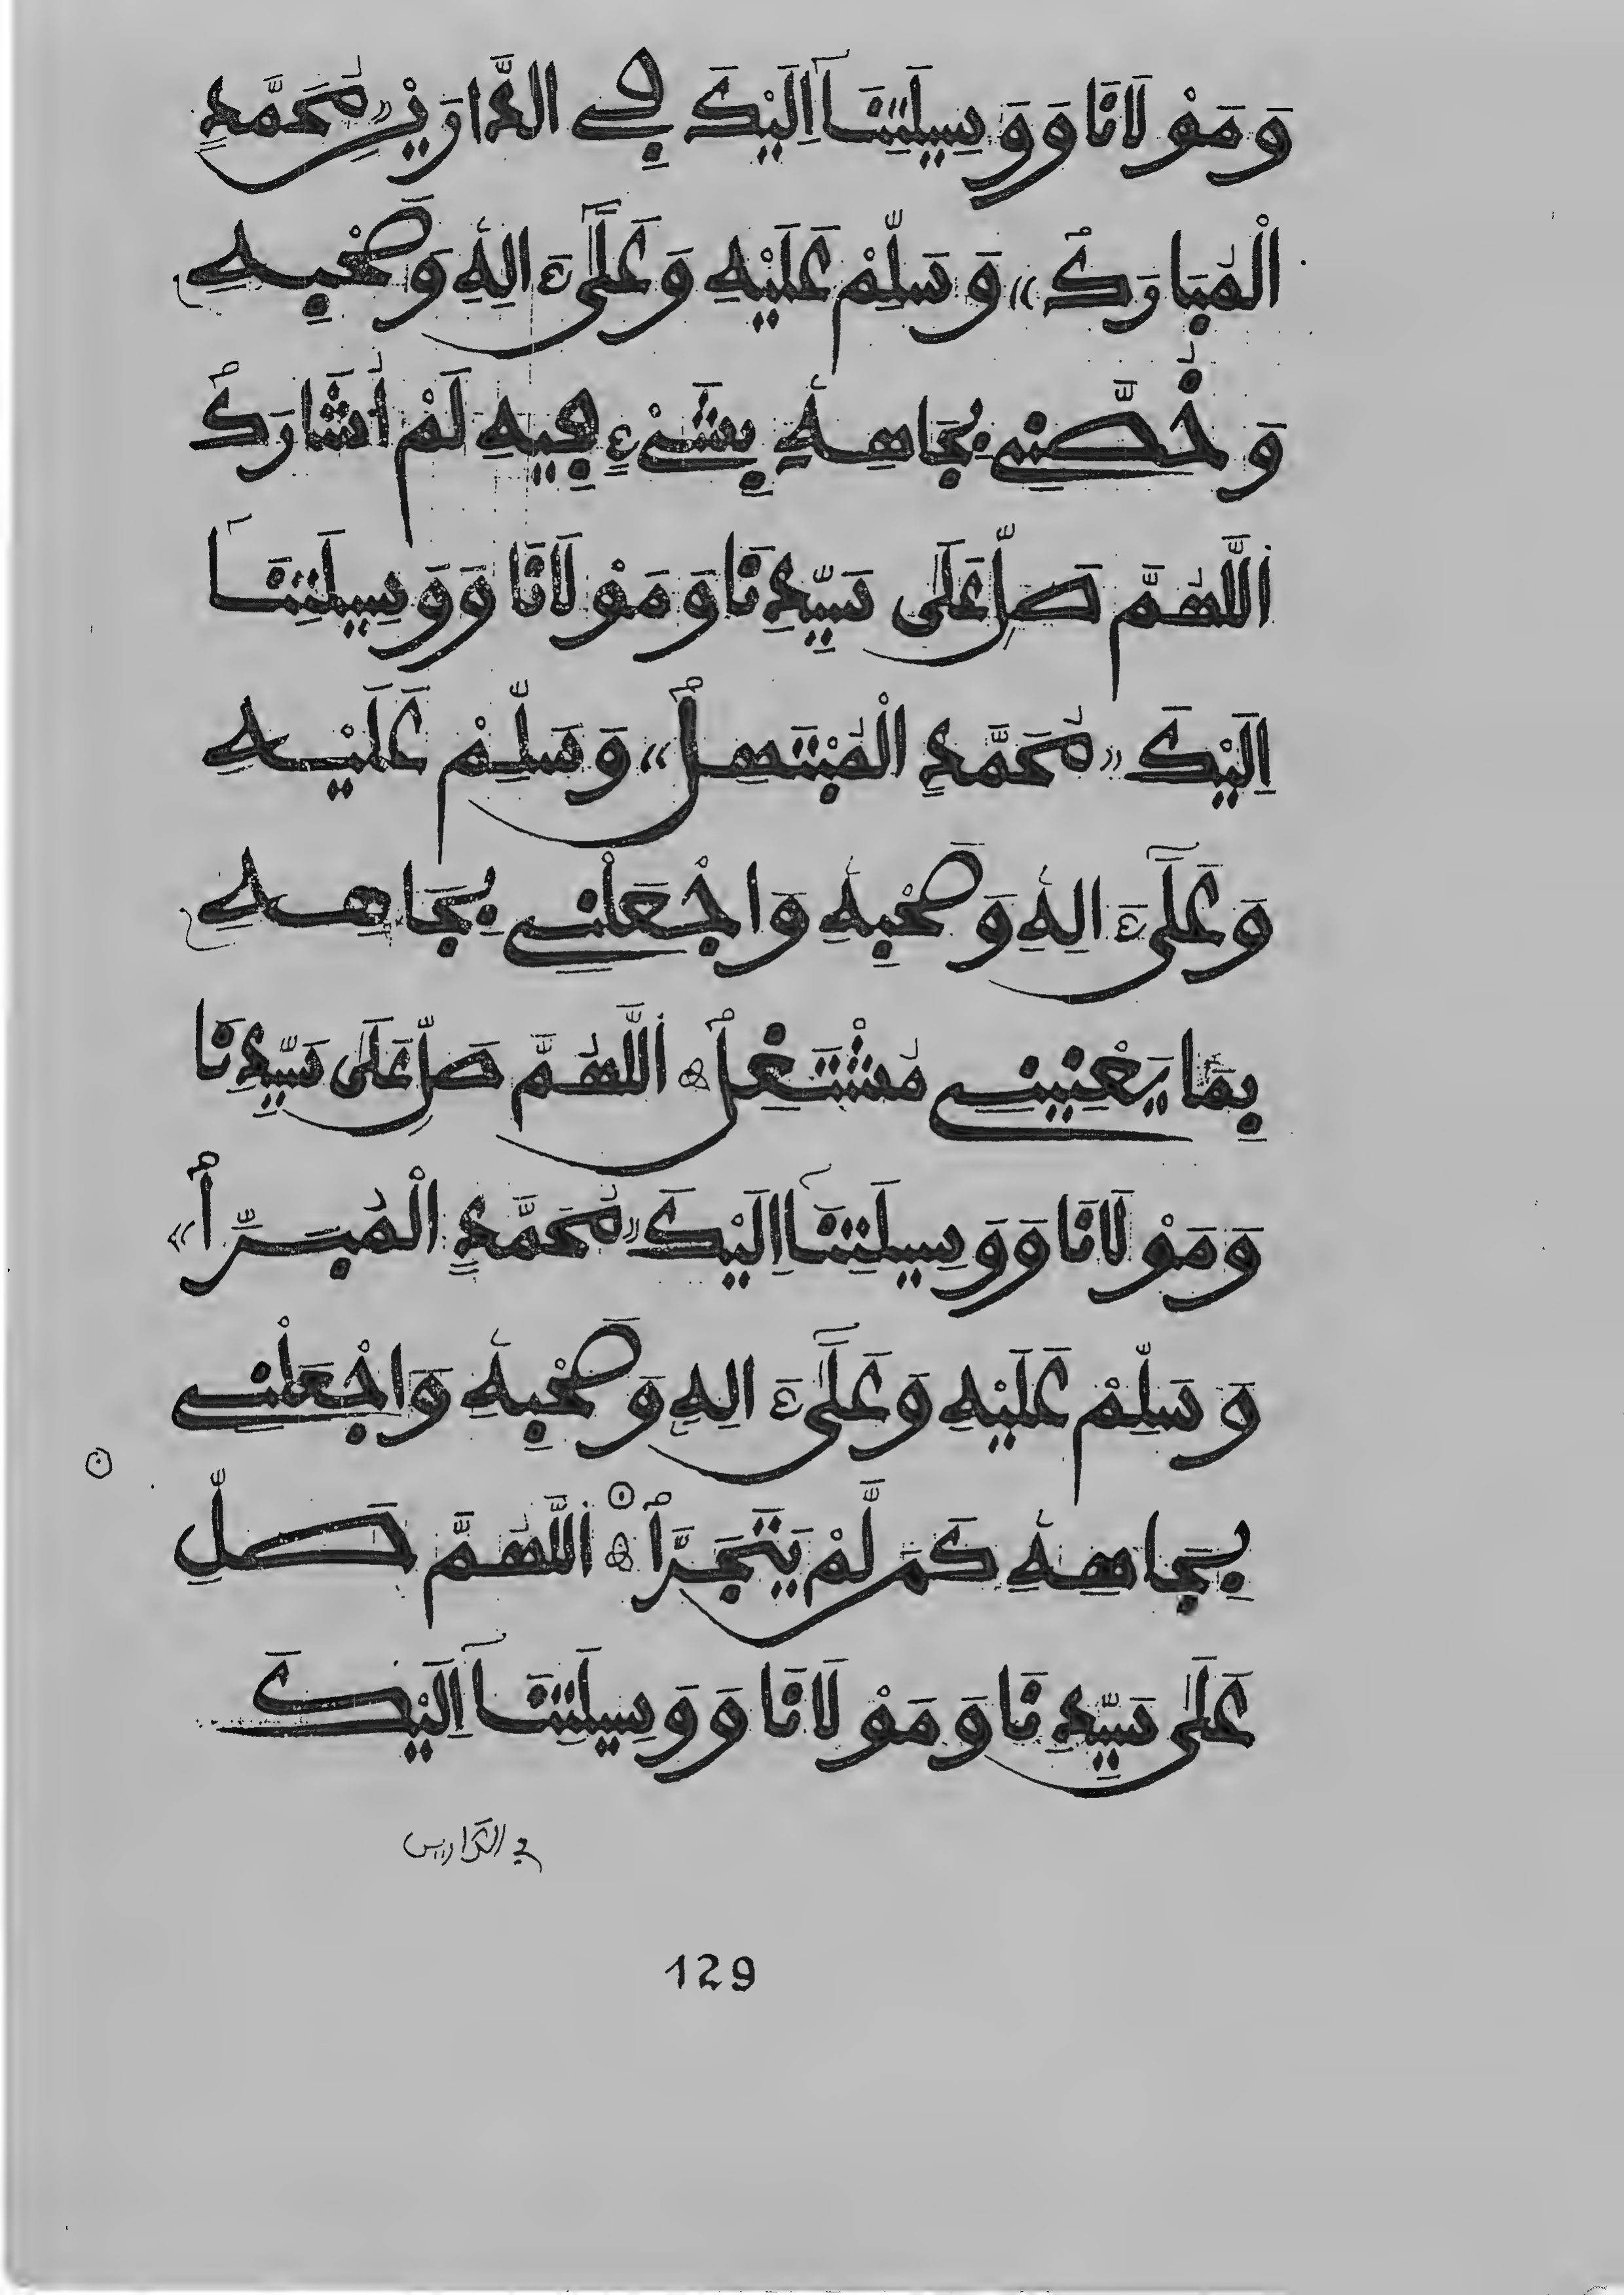 وَمَوْلَانَا وَوَسِيلَتِنَا إِلَيْكَ فِي الدَّارَيْنِ «مُحَمَّدٍ
الْمُبَارَكْ» وَسَلِّمْ عَلَيْهِ وَعَلَىٰ ءَالِهِ وَصَحْبِهِ
وَخُصَّنِي بِجَاهِهِ بِشَيْءٍ فِيهِ لَمْ أُشَارَكْ
اَللَّهُمَّ صَلِّ عَلَى سَيِّدِنَا وَمَوْلَانَا وَوَسِيلَتِنَا
إِلَيْكَ «مُحَمَّدٍ الْمُبْتَهِلْ» وَسَلِّمْ عَلَيْهِ
وَعَلَىٰ ءَالِهِ وَصَحْبِهِ وَاجْعَلْنِي بِجَاهِهِ
بِمَا يَعْنِينِي مُشْتَغِلْ ۞ اَللَّهُمَّ صَلِّ عَلَى سَيِّدِنَا
وَمَوْلَانَا وَوَسِيلَتِنَا إِلَيْكَ «مُحَمَّدٍ الْمُبَرَّأْ»
وَسَلِّمْ عَلَيْهِ وَعَلَىٰ ءَالِهِ وَصَحْبِهِ وَاجْعَلْنِي
بِجَاهِهِ كَمَن لَّمْ يَتَجَرَّأْ ۞ اَللَّهُمَّ صَلِّ
عَلَى سَيِّدِنَا وَمَوْلَانَا وَوَسِيلَتِنَا إِلَيْكَ
129